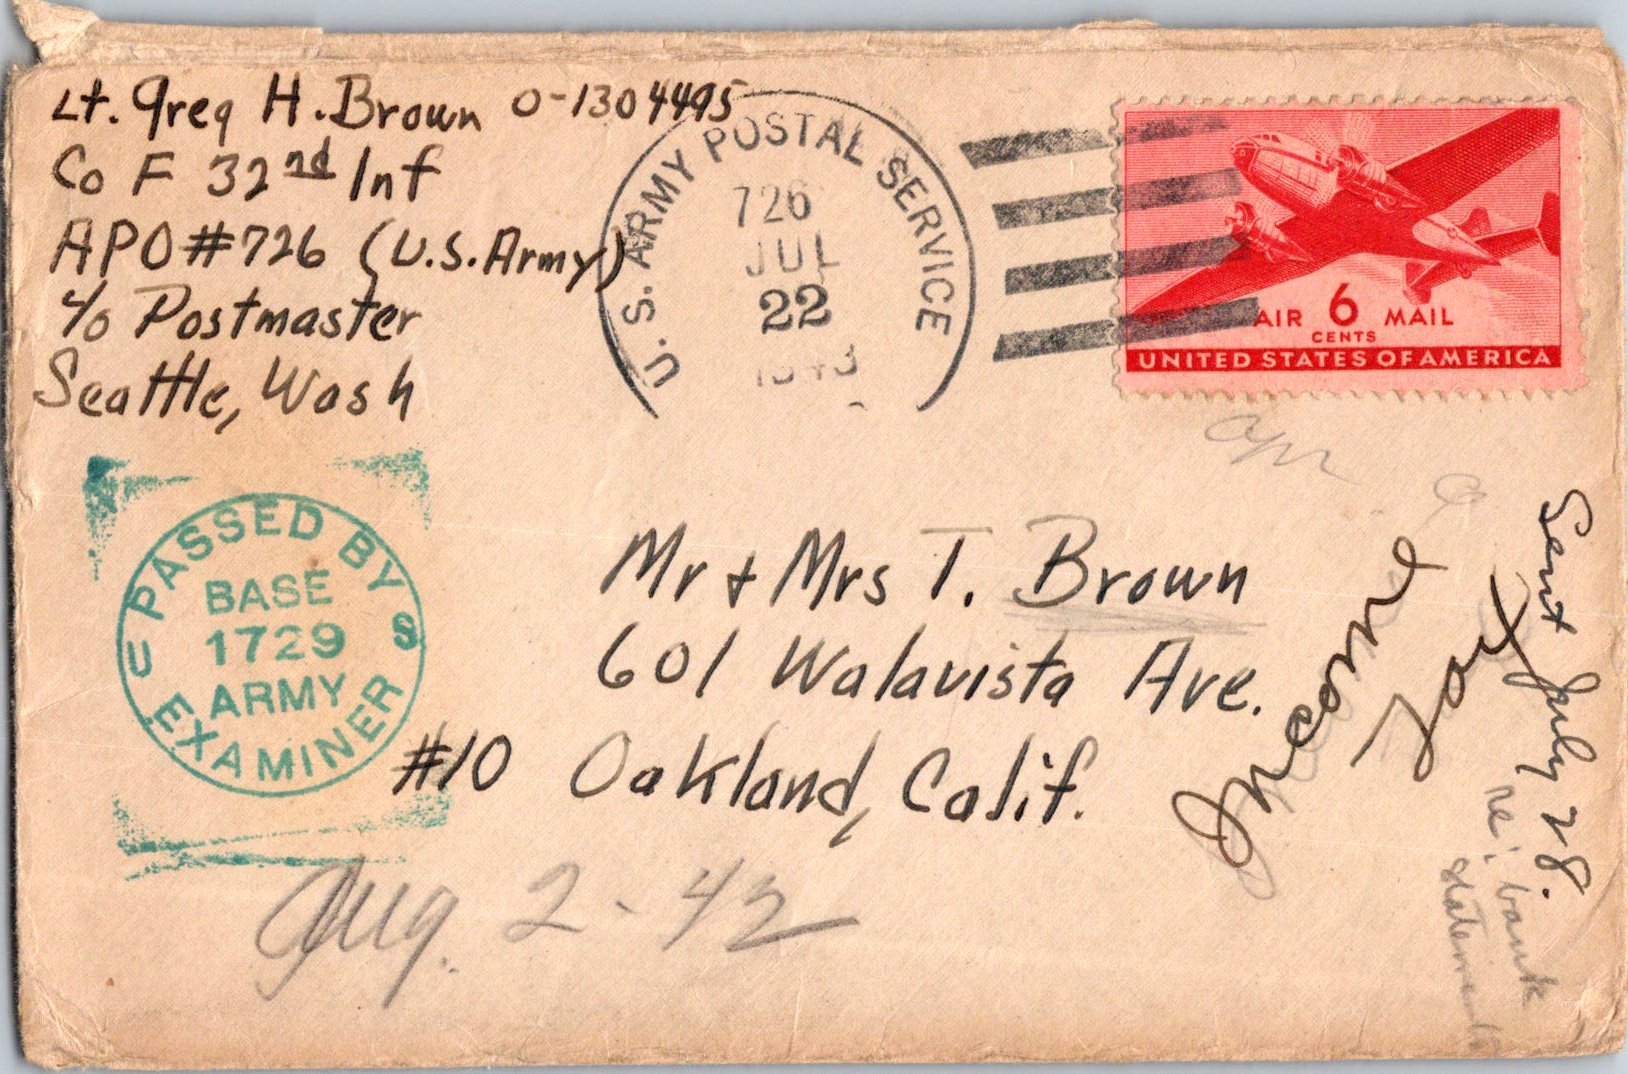 Lt. Greg H. Brown O-1304495
Co F 32nd Inf
APO #726 (U.S. Army)
c/o Postmaster
Seattle, Wash
U.S. ARMY POSTAL SERVICE
726
JUL
22
1943
AIR 6 MAIL
CENTS
UNITED STATES OF AMERICA
PASSED BY
BASE
1729
ARMY
EXAMINER
U S
Mr & Mrs T. Brown
601 Walavista Ave.
#10 Oakland, Calif.
Income
Tax
Sent July 28.
re: bank
statement
Aug. 2-42